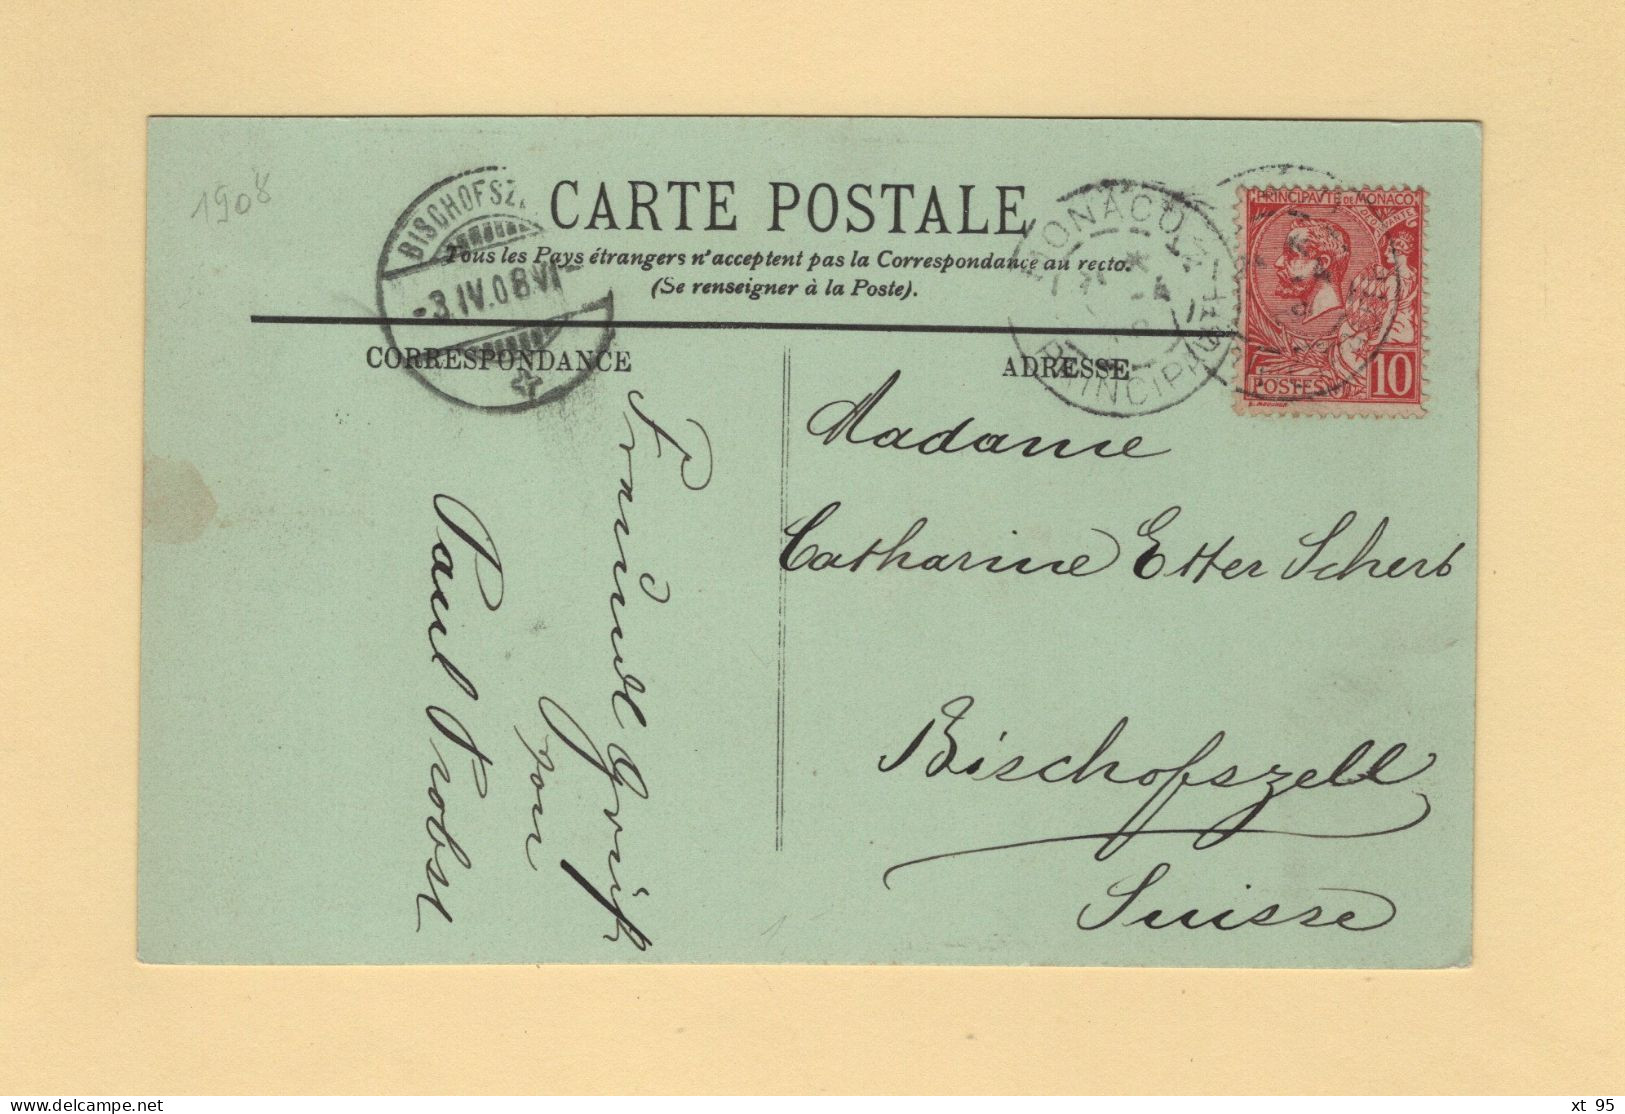 1908
BISCHOFSZ
-3.IV.08.VI-
CARTE POSTALE
Tous les Pays étrangers n'acceptent pas la Correspondance au recto.
(Se renseigner à la Poste).
CORRESPONDANCE
ADRESSE
MONACO
PRINCIPAUTÉ
PRINCIPAVTE DE MONACO
POSTES
10
Madame
Catharine Etter Scherb
Bischofszell
Suisse
Freundl Gruß
von
Paul Probst
xt 95